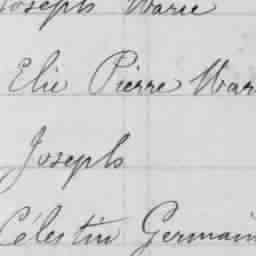 Joseph Marie
Elie Pierre Mar
Joseph
Célestin Germain